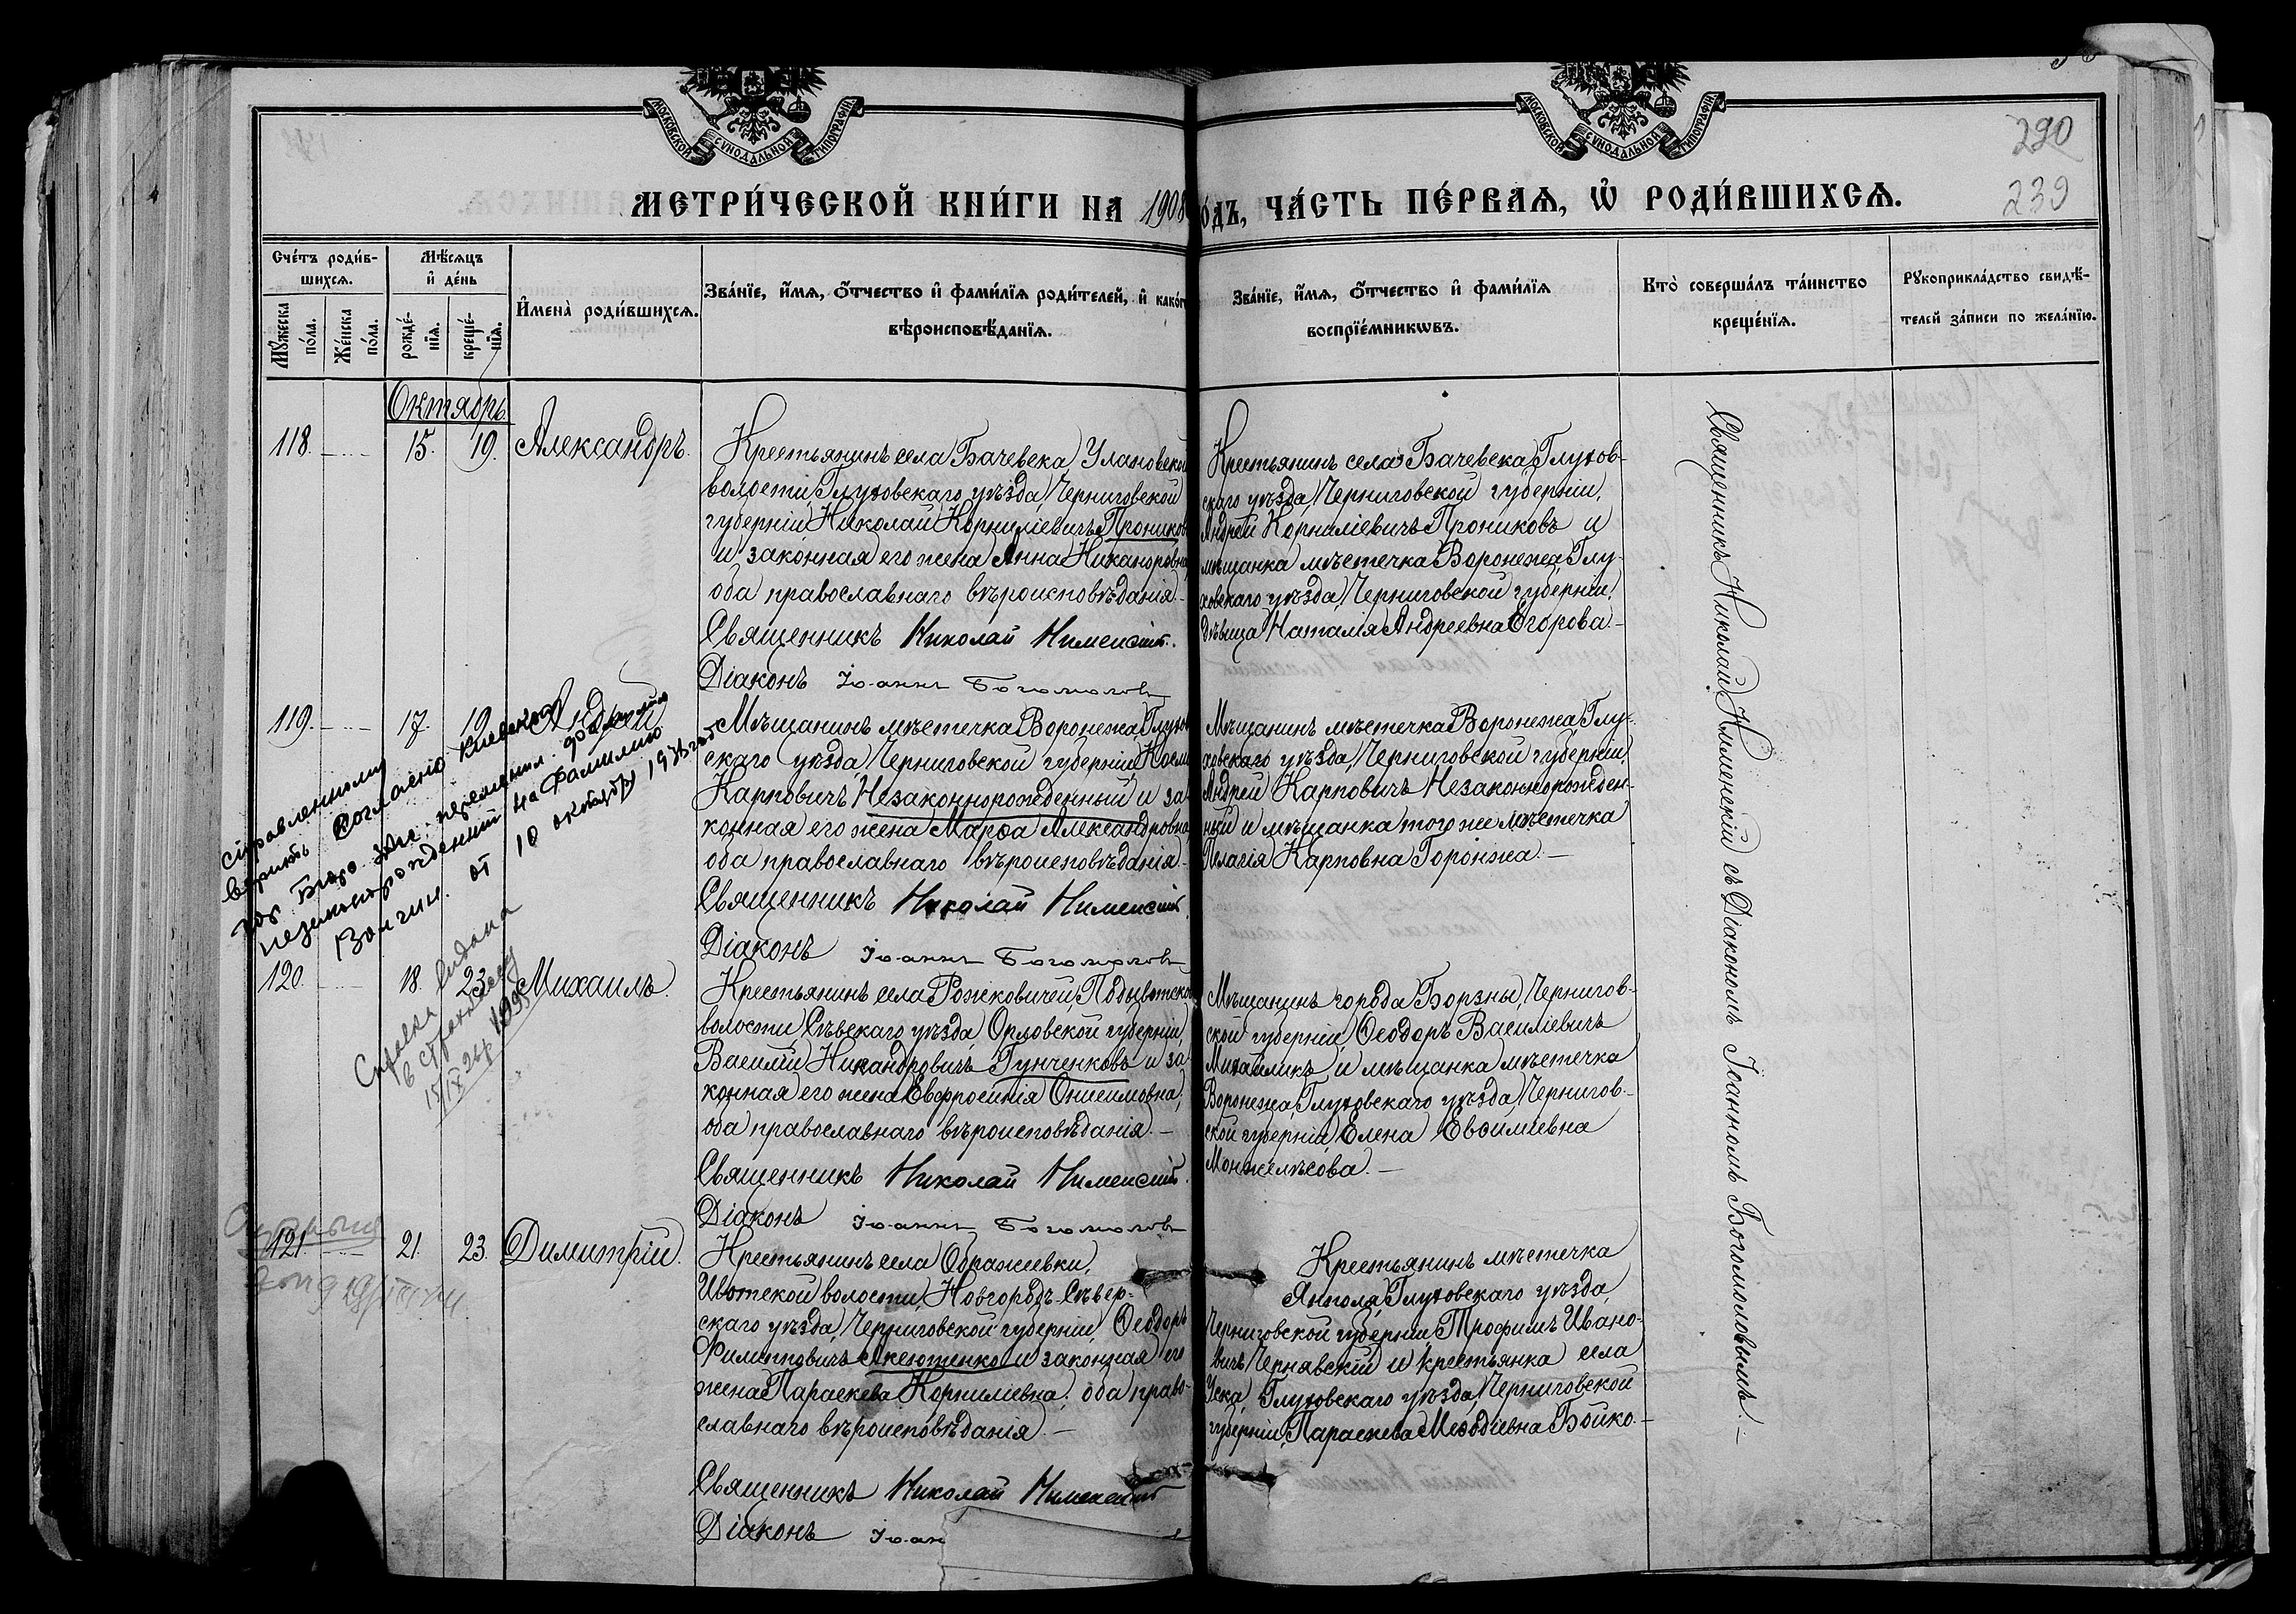 МОСКОВСКОЙ СѴНОДАЛЬНОЙ ТИПОГРАФІИ
МОСКОВСКОЙ СѴНОДАЛЬНОЙ ТИПОГРАФІИ
290
239
МЕТРИ́ЧЕСКОЙ КНИ́ГИ НА 1908
О́ДЪ, ЧА́СТЬ ПЕ́РВАѦ, Ѽ РОДИ́ВШИХСѦ.
Сче́тъ роди́в-
шихсѧ.
Мꙋ́жеска по́ла.
Же́нска по́ла.
Мѣ́сѧцъ и҆ де́нь
рожде́-
нїѧ.
креще́-
нїѧ.
И҆мена̀ роди́вшихсѧ.
Зва́нїе, и҆́мѧ, ѻ҆́тчество и҆ фами́лїѧ роди́телей, и҆ како́г
вѣроисповѣ́данїѧ.
Зва́нїе, и҆́мѧ, ѻ҆́тчество и҆ фами́лїѧ
воспрїе́мникѡвъ.
Кто̀ соверша́лъ та́инство
креще́нїѧ.
Рꙋкоприкла́дство свидѣ́-
телей за́писи по жела́нїю.
Октябрь.
118. 15. 19. Александръ.
Крестьянинъ села Бачевска, Улановской
волости, Глуховскаго уѣзда, Черниговской
губерніи Николай Корниліевичъ Прониковъ
и законная его жена Анна Никаноровна
оба православнаго вѣроисповѣданія.
Священникъ Николай Кименскій.
Діаконъ Іоаннъ Богомоловъ
Крестьянинъ села Бачевска, Глухов-
скаго уѣзда, Черниговской губерніи,
Андрей Корниліевичъ Прониковъ и
мѣщанка мѣстечка Воронежа, Глу-
ховскаго уѣзда, Черниговской губерніи,
дѣвица Наталія Андреевна Егорова.
119. 17. 19. Андрей
Мѣщанинъ мѣстечка Воронежа, Глухов
скаго уѣзда, Черниговской губерніи, Косма
Карповичъ Незаконнорожденный и за-
конная его жена Марѳа Александровна
оба православнаго вѣроисповѣданія.
Священникъ Николай Кименскій.
Діаконъ Іоаннъ Богомоловъ
Мѣщанинъ мѣстечка Воронежа, Глу-
ховскаго уѣзда, Черниговской губерніи,
Андрей Карповичъ Незаконнорожден-
ный и мѣщанка того же мѣстечка
Пелагія Карповна Горонжа.
справленному
верить согласно Киевског
Бюро переменил
на фамилию
от 10 октября
120. 18. 23. Михаилъ.
Крестьянинъ села Рожковичей, Подывотской
волости, Сѣвскаго уѣзда, Орловской губерніи,
Василій Никандровичъ Гунченковъ и за-
конная его жена Евфросинія Онисимовна,
оба православнаго вѣроисповѣданія.
Священникъ Николай Кименскій.
Діаконъ Іоаннъ Богомоловъ
Мѣщанинъ города Борзны, Чернигов-
ской губерніи, Ѳеодоръ Василіевичъ
Михайликъ и мѣщанка мѣстечка
Воронежа, Глуховскаго уѣзда, Чернигов-
ской губерніи, Елена Евѳиміевна
Монжелѣсова.
Справка видана
в страхкассу
121 21. 23. Димитрій.
Крестьянинъ села Ображеевки,
Ивотской волости, Новгородъ-Сѣвер-
скаго уѣзда, Черниговской губерніи, Ѳеодоръ
Филипповичъ Аксютенко и законная его
жена Параскева Корниліевна, оба право-
славнаго вѣроисповѣданія.
Священникъ Николай Кименскій
Діаконъ Іоан
Крестьянинъ мѣстечка
Янполя, Глуховскаго уѣзда,
Черниговской губерніи, Трофимъ Ивано-
вичъ Чернявскій и крестьянка села
Уска, Глуховскаго уѣзда, Черниговской
губерніи, Параскева Меѳодіевна Бойко.
Священникъ Николай Кименскій съ Діакономъ Іоанномъ Богомоловымъ.